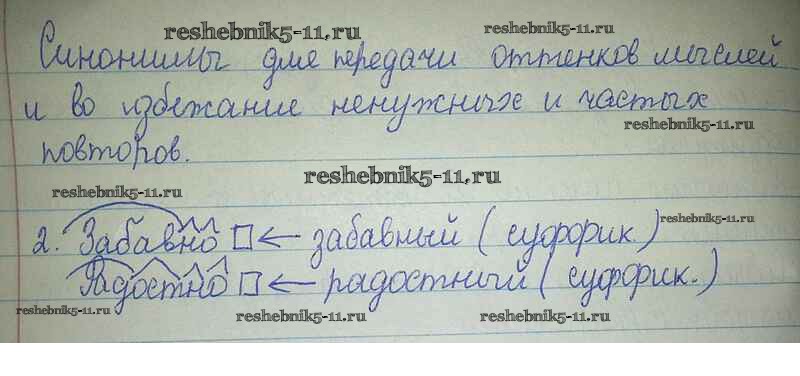 reshebnik5-11.ru
reshebnik5-11.ru
Синонимы для передачи оттенков мыслей
и во избежание ненужных и частых
reshebnik5-11.ru
повторов.
reshebnik5-11.ru
reshebnik5-11.ru
reshebnik5-11.ru
2. Забавно □ ← забавный (суффик.)
Радостно □ ← радостный (суффик.)
reshebnik5-11.ru
reshebnik5-11.ru
reshebnik5-11.ru